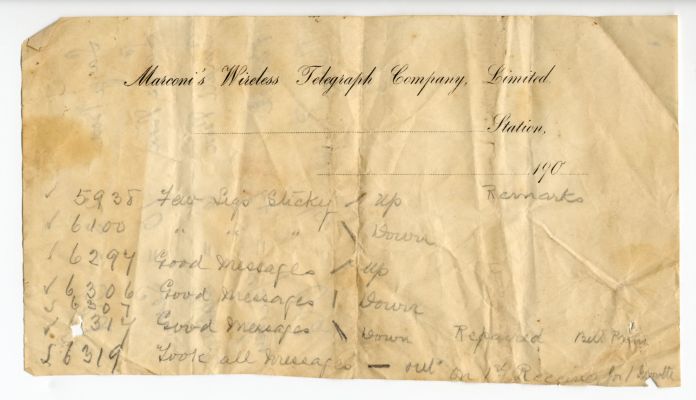 Marconi's Wireless Telegraph Company, Limited.
Station,
190
✓ 5938 Few Sigs Sticky / up Remarks
✓ 6100 " " " \ Down
✓ 6294 Good Messages / up
✓ 6306 Good Messages | Down
✓ 6307
✓ 6314 Good Messages \ Down Repaired Bill
✓ 6319 Took all Messages — out on 1st for